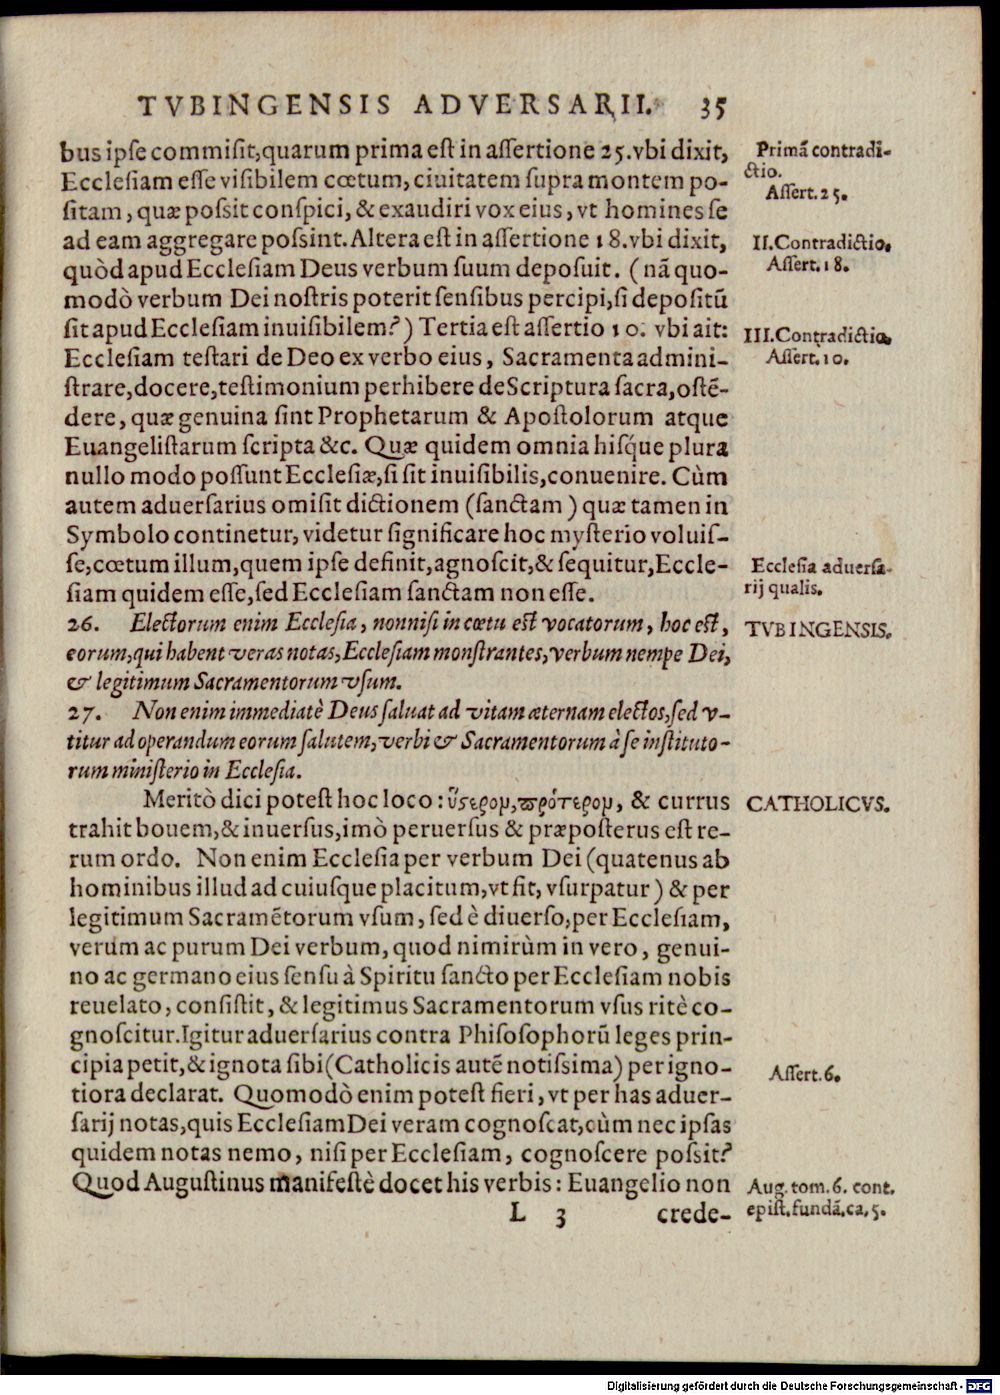 TVBINGENSIS ADVERSARII. 35
bus ipſe commiſit, quarum prima eſt in aſſertione 25. vbi dixit,
Eccleſiam eſſe viſibilem cœtum, ciuitatem ſupra montem po-
ſitam, quæ poſsit conſpici, & exaudiri vox eius, vt homines ſe
ad eam aggregare poſsint. Altera eſt in aſſertione 18. vbi dixit,
quòd apud Eccleſiam Deus verbum ſuum depoſuit. (nã quo-
modò verbum Dei noſtris poterit ſenſibus percipi, ſi depoſitũ
ſit apud Eccleſiam inuiſibilem?) Tertia eſt aſſertio 10. vbi ait:
Eccleſiam teſtari de Deo ex verbo eius, Sacramenta admini-
ſtrare, docere, teſtimonium perhibere de Scriptura ſacra, oſtẽ-
dere, quæ genuina ſint Prophetarum & Apoſtolorum atque
Euangeliſtarum ſcripta &c. Quæ quidem omnia hiſq́ue plura
nullo modo poſſunt Eccleſiæ, ſi ſit inuiſibilis, conuenire. Cùm
autem aduerſarius omiſit dictionem (ſanctam) quæ tamen in
Symbolo continetur, videtur ſignificare hoc myſterio voluiſ-
ſe, cœtum illum, quem ipſe definit, agnoſcit, & ſequitur, Eccle-
ſiam quidem eſſe, ſed Eccleſiam ſanctam non eſſe.
26. Electorum enim Eccleſia, nonniſi in cœtu eſt vocatorum, hoc eſt,
eorum, qui habent veras notas, Eccleſiam monſtrantes, verbum nempe Dei,
& legitimum Sacramentorum vſum.
27. Non enim immediatè Deus ſaluat ad vitam æternam electos, ſed v-
titur ad operandum eorum ſalutem, verbi & Sacramentorum à ſe inſtituto-
rum miniſterio in Eccleſia.
Meritò dici poteſt hoc loco: ὕςερομ, πρότερομ, & currus
trahit bouem, & inuerſus, imò peruerſus & præpoſterus eſt re-
rum ordo. Non enim Eccleſia per verbum Dei (quatenus ab
hominibus illud ad cuiuſque placitum, vt fit, vſurpatur) & per
legitimum Sacramẽtorum vſum, ſed è diuerſo, per Eccleſiam,
verum ac purum Dei verbum, quod nimirùm in vero, genui-
no ac germano eius ſenſu à Spiritu ſancto per Eccleſiam nobis
reuelato, conſiſtit, & legitimus Sacramentorum vſus ritè co-
gnoſcitur. Igitur aduerſarius contra Phiſoſophorũ leges prin-
cipia petit, & ignota ſibi (Catholicis autẽ notiſsima) per igno-
tiora declarat. Quomodò enim poteſt fieri, vt per has aduer-
ſarij notas, quis Eccleſiam Dei veram cognoſcat, cùm nec ipſas
quidem notas nemo, niſi per Eccleſiam, cognoſcere poſsit?
Quod Auguſtinus manifeſtè docet his verbis: Euangelio non
L 3 crede-
Primã contradi-
ctio.
Aſſert. 25.
II. Contradictio.
Aſſert. 18.
III. Contradictio.
Aſſert. 10.
Eccleſia aduerſa-
rij qualis.
TVBINGENSIS.
CATHOLICVS.
Aſſert. 6.
Aug. tom. 6. cont.
epiſt. fundã. ca. 5.
Digitalisierung gefördert durch die Deutsche Forschungsgemeinschaft - DFG